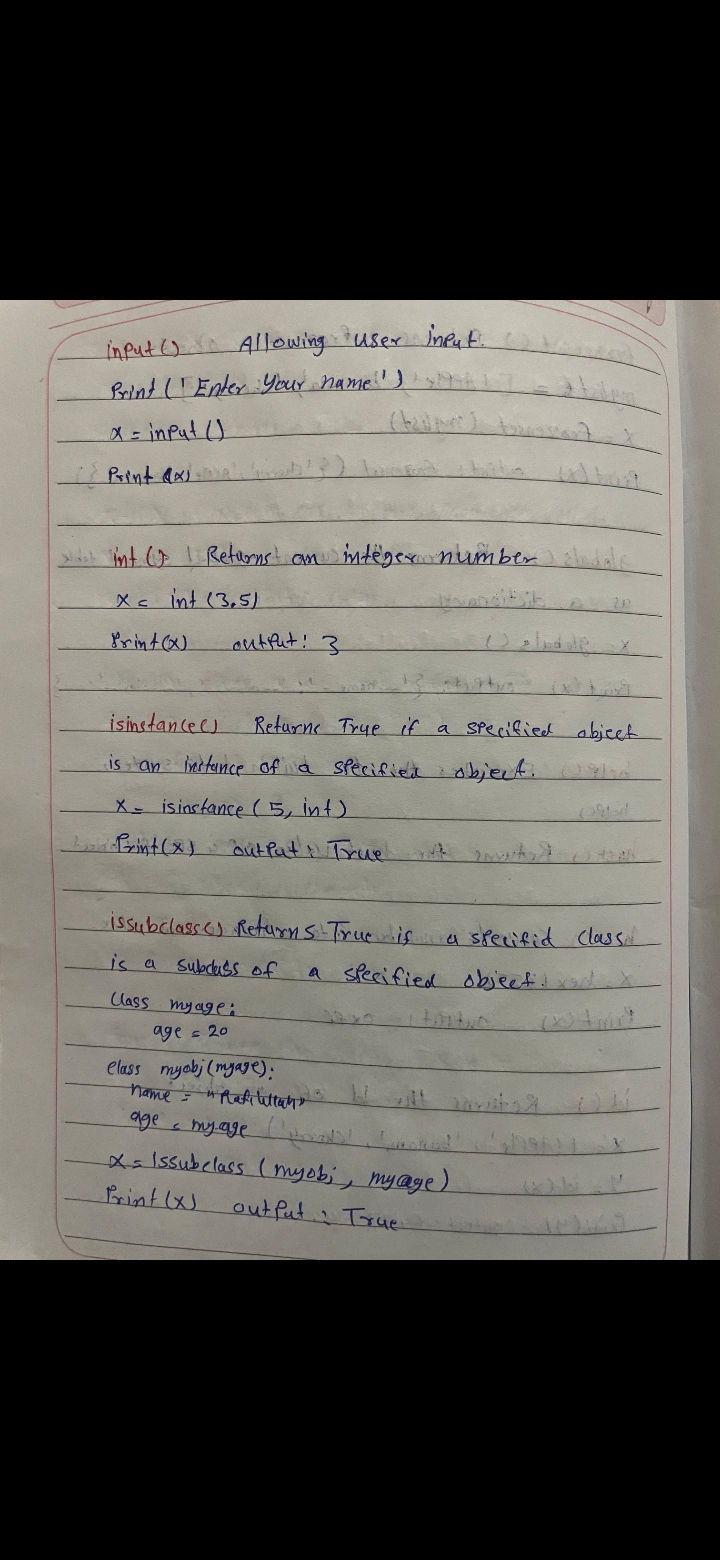 input() Allowing user input.
Print ('Enter Your name')
x = input ()
Print (x)
int () Returns an integer number
x = int (3.5)
Print(x) output: 3
isinstance() Returns True if a specified object
is an instance of a specified object.
x = isinstance (5, int)
Print(x) output : True
issubclass() Returns True if a specifid class
is a subclass of a specified object.
Class myage:
age = 20
class myobj (myage):
name = "Rafiullah"
age = myage
x = Issubclass (myobj, myage)
Print (x) output : True